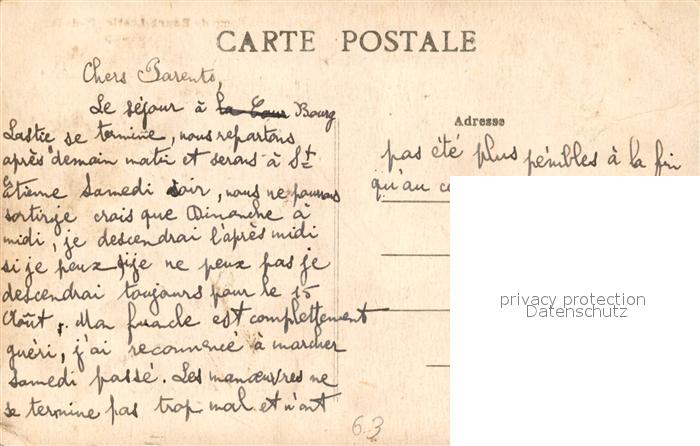 CARTE POSTALE
Chers Parents,
Le séjour à la Cour Bourg
Lastic se termine, nous repartons
après demain matin et serons à St
Etienne Samedi soir, nous ne pouvons
sortir je crois que Dimanche à
midi, je descendrai l'après midi
si je peux, si je ne peux pas je
descendrai toujours pour le 15
Août. Mon furacle est complettement
guéri, j'ai recommencé à marcher
Samedi passé. Les manœuvres ne
se termine pas trop mal et n'ont
Adresse
pas été plus pénibles à la fin
qu'au
privacy protection
Datenschutz
63